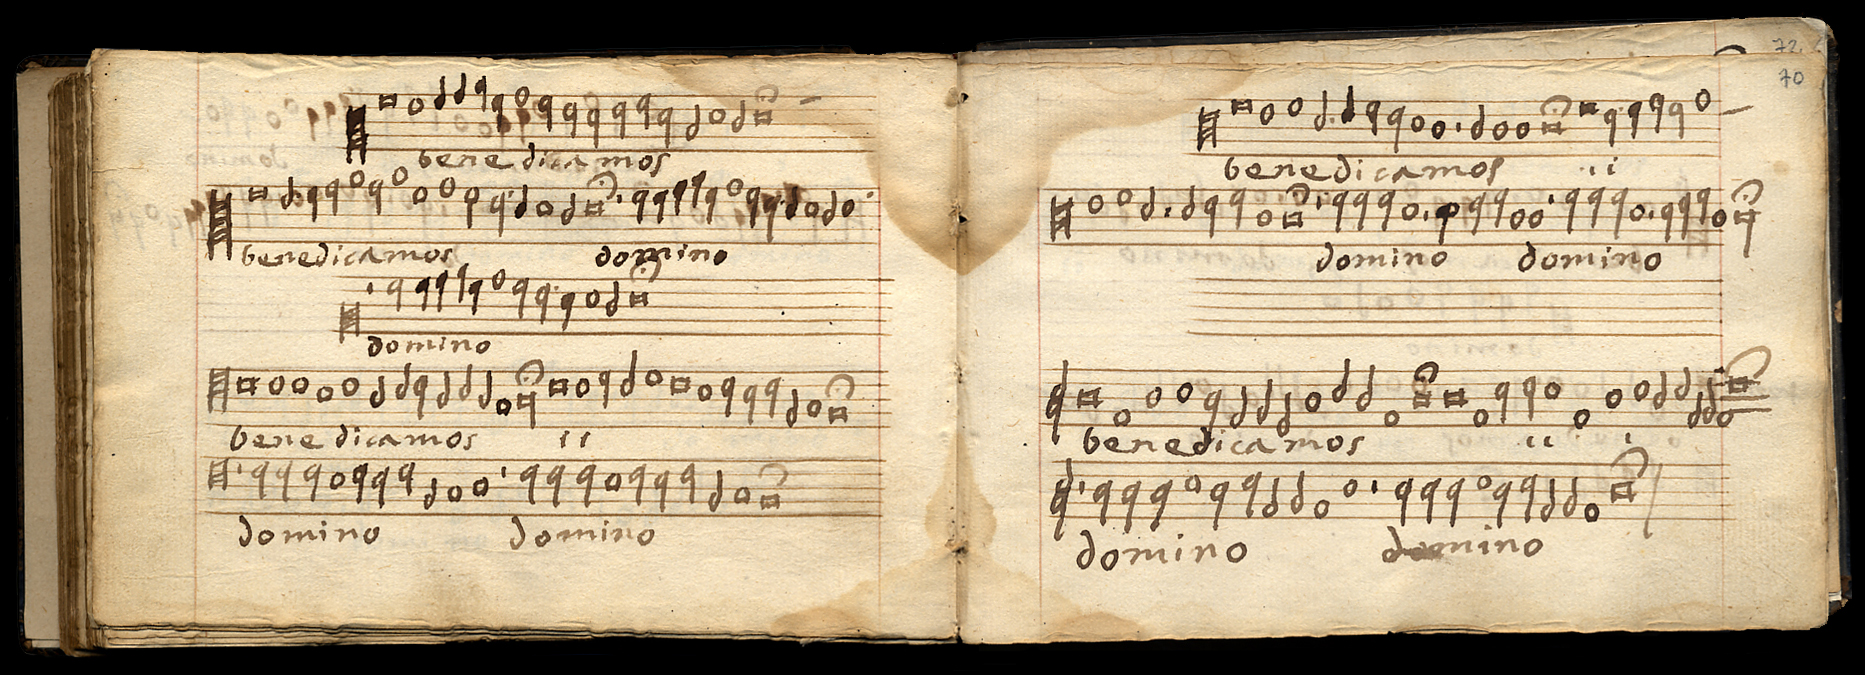 bene dicamos
benedicamos domino
domino
bene dicamos ii
domino domino
72
70
benedicamos ii
domino domino
benedicamos ii
domino domino